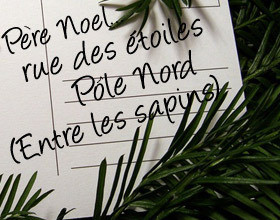 Père Noel...
rue des étoiles
Pôle Nord
(Entre les sapins)